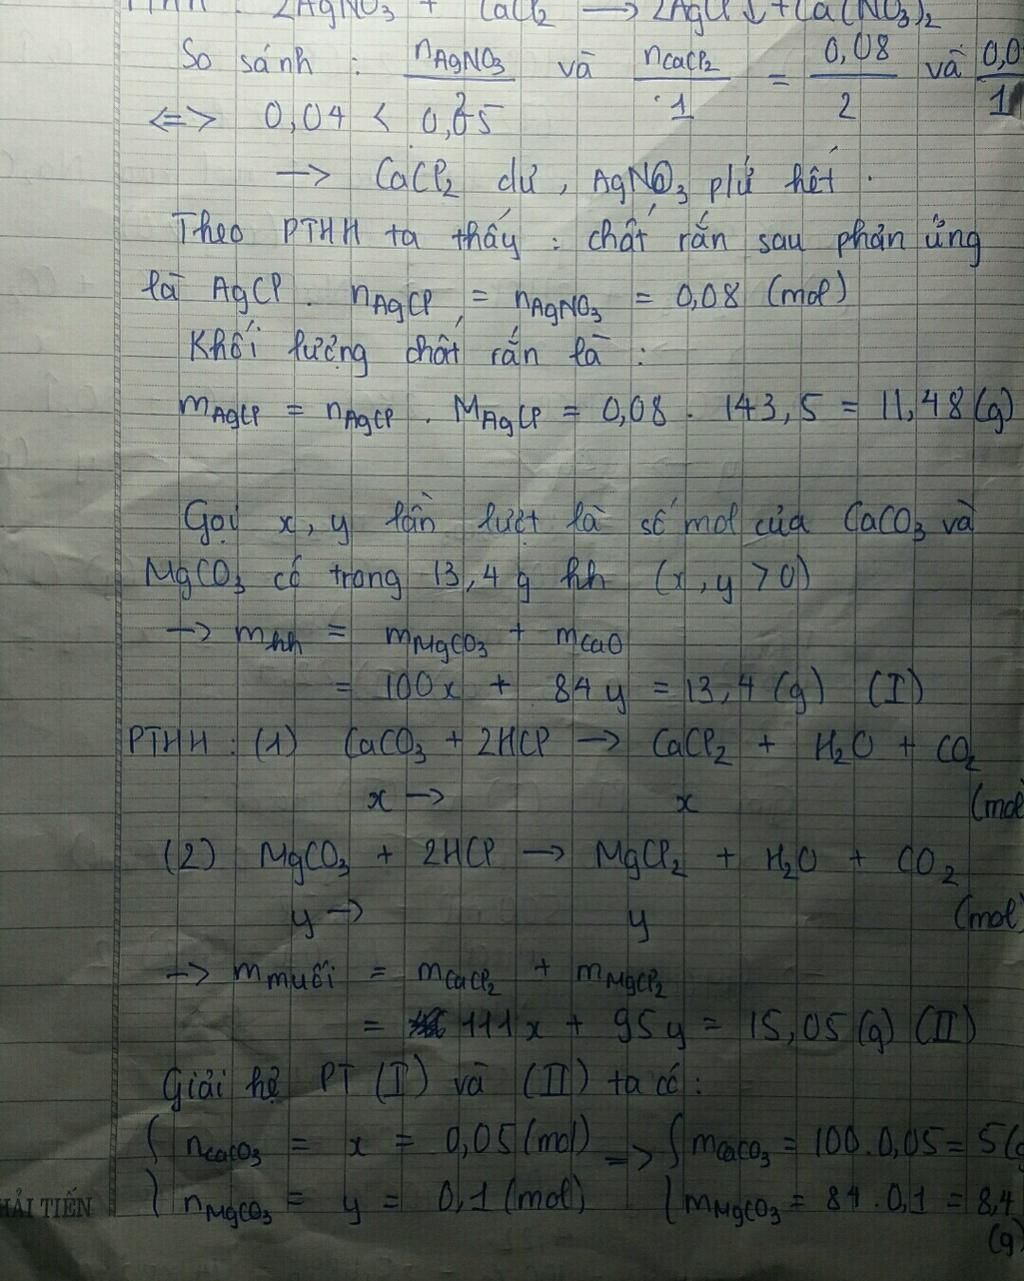 PTHH : 2AgNO3 + CaCl2 → 2AgCl↓ + Ca(NO3)2
So sánh : nAgNO3/2 và nCaCl2/1 = 0,08/2 và 0,0/1
<=> 0,04 < 0,05
→ CaCl2 dư, AgNO3 p/ứ hết.
Theo PTHH ta thấy : chất rắn sau phản ứng
là AgCl. nAgCl = nAgNO3 = 0,08 (mol)
Khối lượng chất rắn là :
mAgCl = nAgCl . MAgCl = 0,08 . 143,5 = 11,48 (g)
Gọi x, y lần lượt là số mol của CaCO3 và
MgCO3 có trong 13,4 g hh (x, y > 0)
→ mhh = mMgCO3 + mCaO
= 100x + 84y = 13,4 (g) (I)
PTHH : (1) CaCO3 + 2HCl → CaCl2 + H2O + CO2
x → x (mol
(2) MgCO3 + 2HCl → MgCl2 + H2O + CO2
y → y (mol)
→ mmuối = mCaCl2 + mMgCl2
= 111x + 95y = 15,05 (g) (II)
Giải hệ PT (I) và (II) ta có :
{ nCaCO3 = x = 0,05 (mol) => { mCaCO3 = 100.0,05 = 5 (g
{ nMgCO3 = y = 0,1 (mol) { mMgCO3 = 84.0,1 = 8,4
(g)
HẢI TIẾN